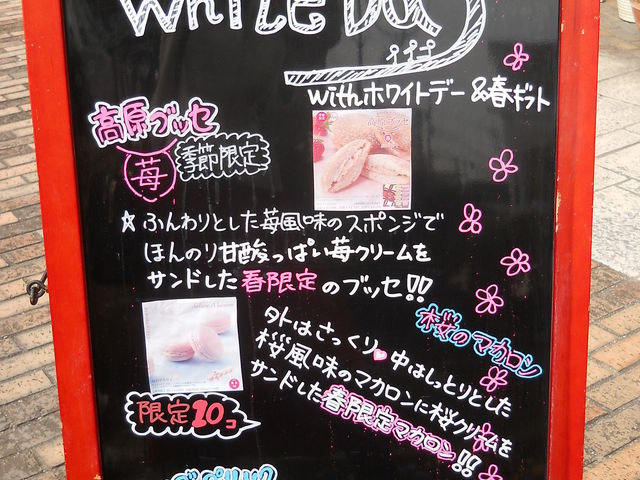 WHITE DAY
withホワイトデー&春ギフト
高原ブッセ
苺
季節限定
☆ふんわりとした苺風味のスポンジで
ほんのり甘酸っぱい苺クリームを
サンドした春限定のブッセ!!
桜のマカロン
外はさっくり♥中はしっとりとした
桜風味のマカロンに桜クリームを
サンドした春限定マカロン!!
限定10コ